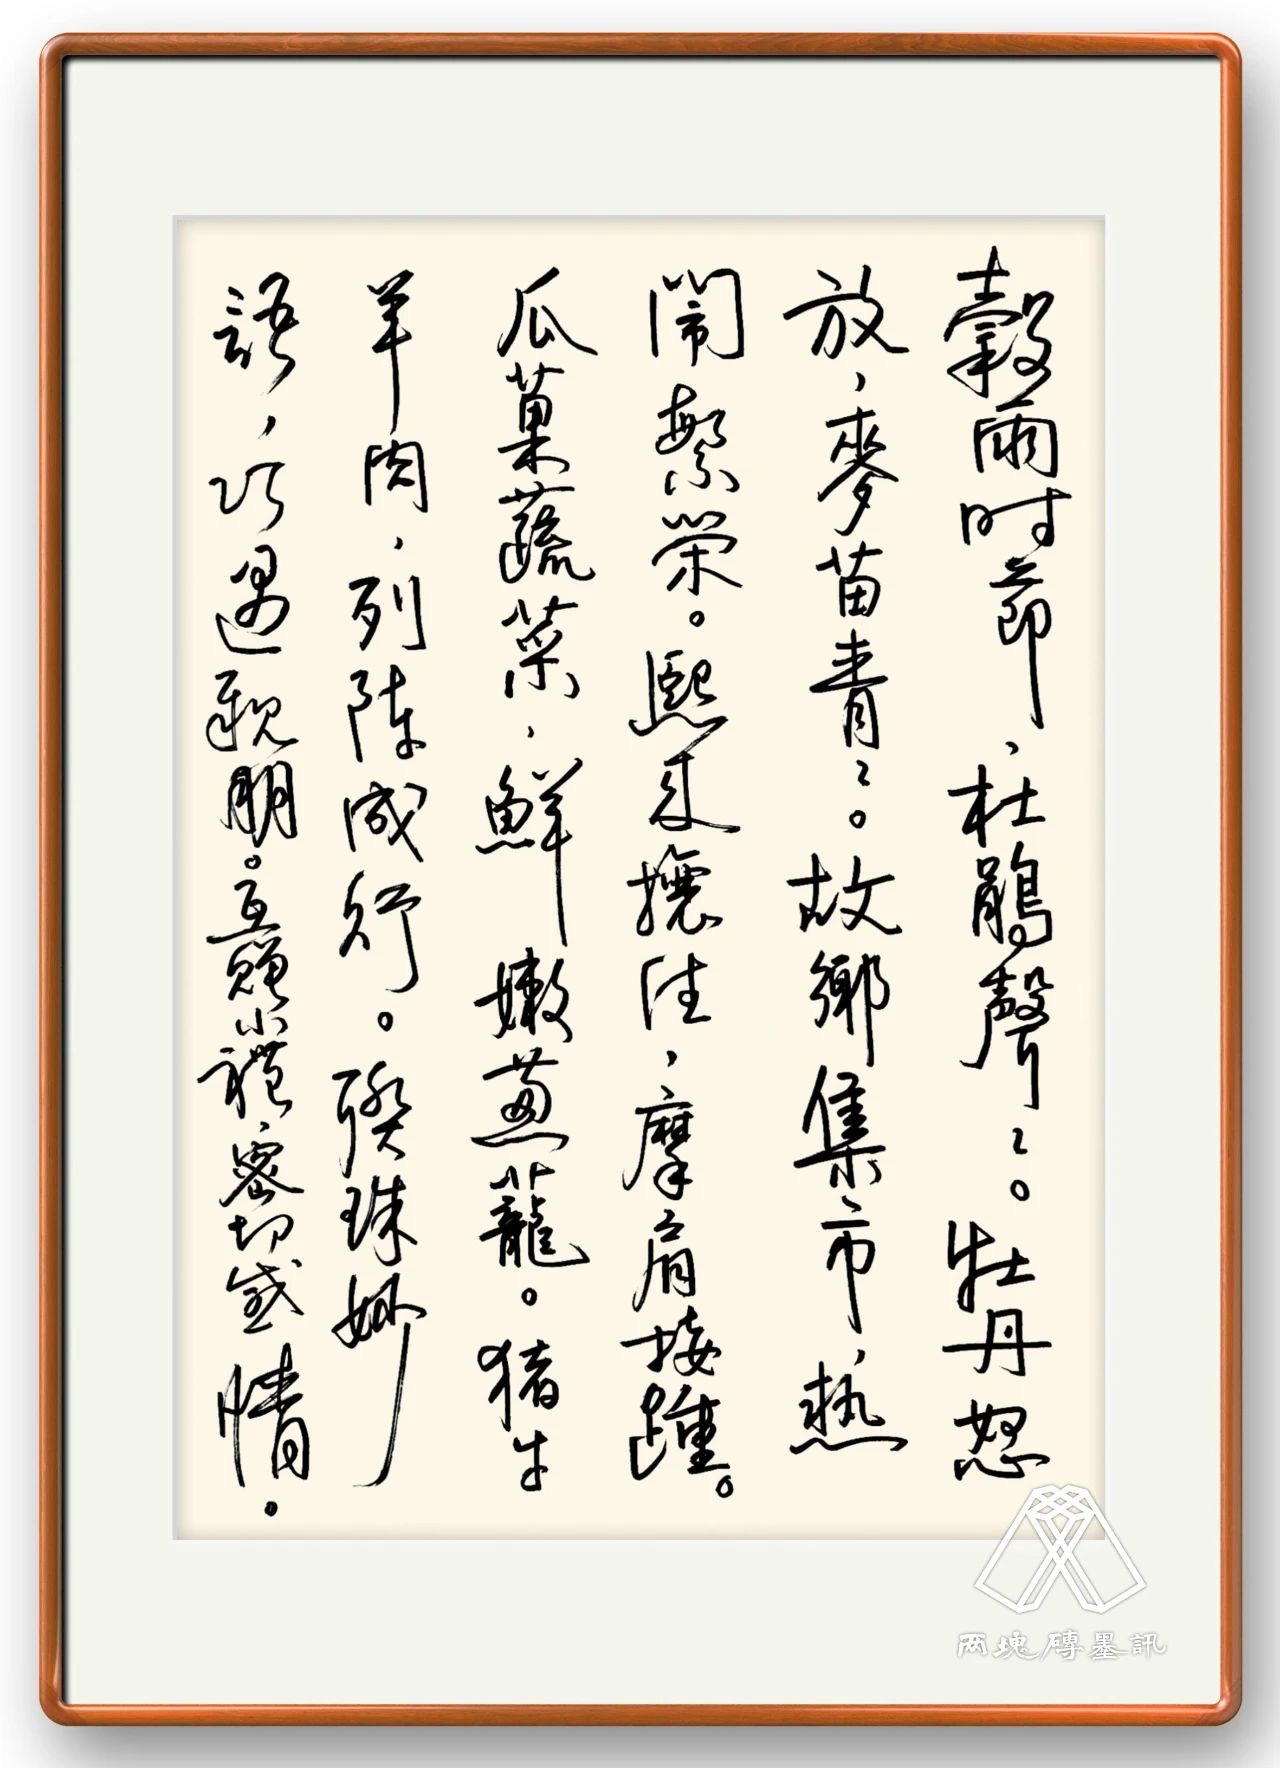 穀雨时節、杜鵑聲〻。牡丹怒
放、麥苗青〻。故鄉集市、熱
鬧繁榮。熙来攘往、摩肩接踵。
瓜菓蔬菜、鮮嫩葱蘢。猪牛
羊肉、列陣成行。聯珠妙
語、巧遇親朋。互贈小禮、密切感情。
两塊磚墨訊